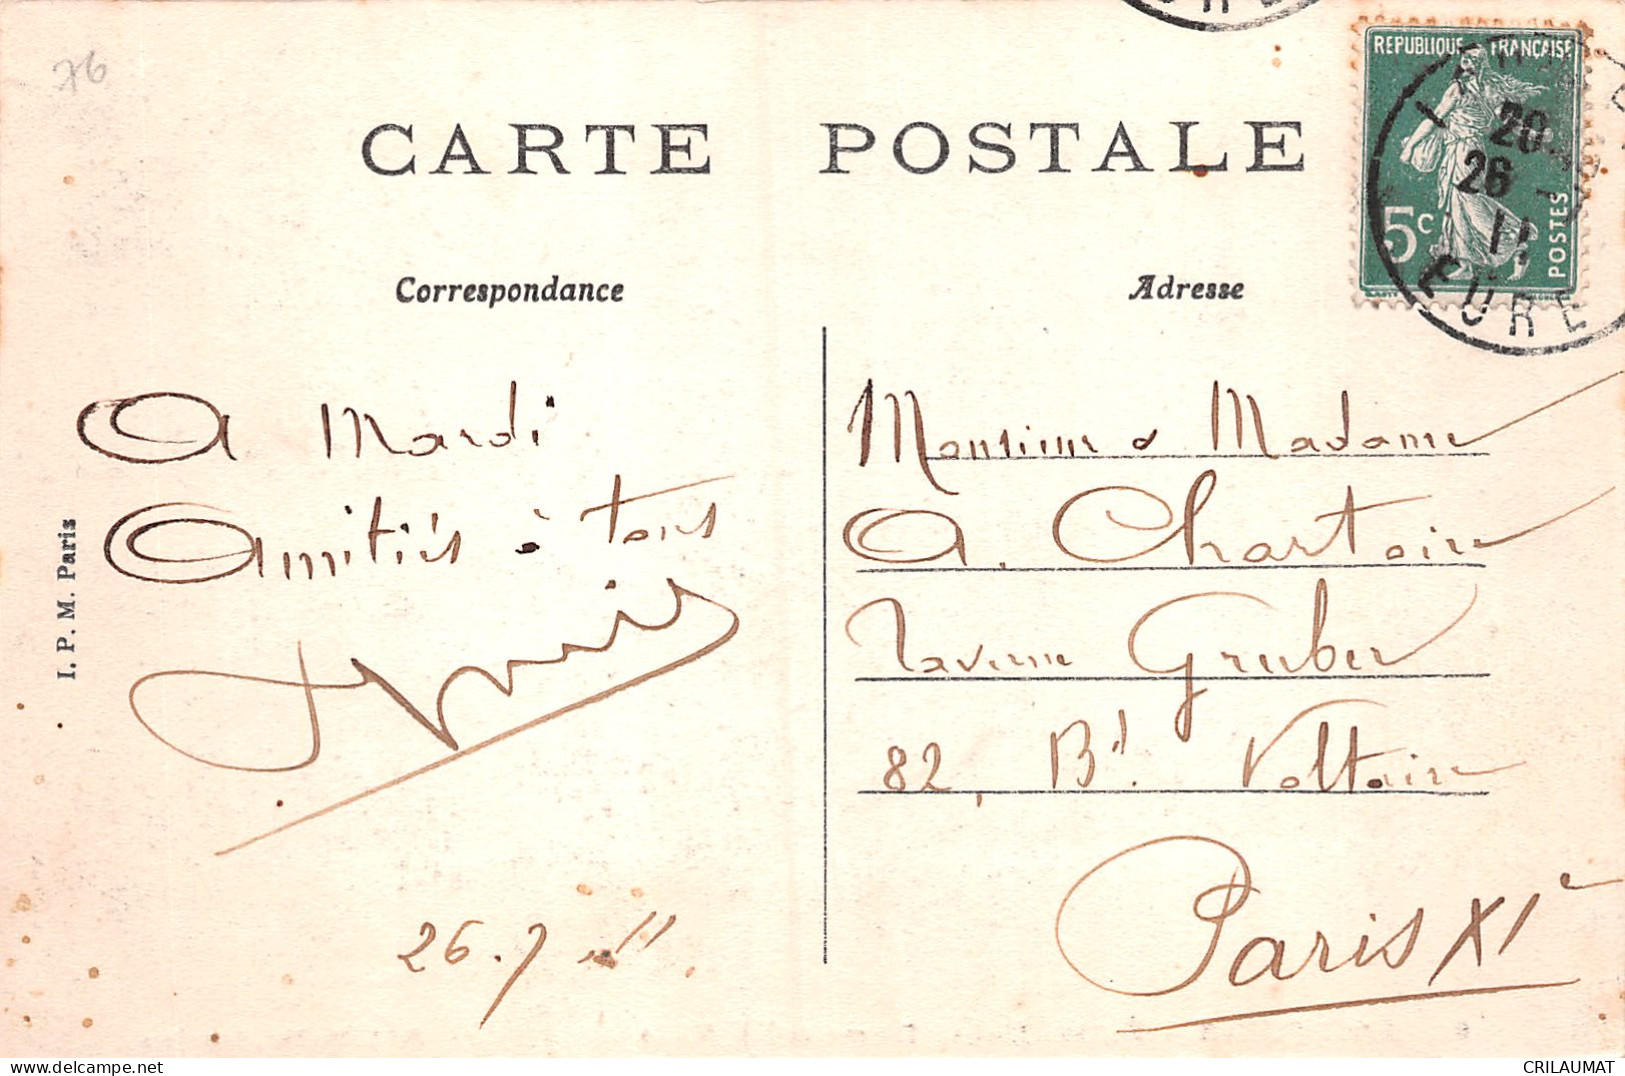 76
CARTE POSTALE
Correspondance
Adresse
REPUBLIQUE FRANÇAISE
5c
POSTES
20
26
11
EURE
A Mardi
Amitiés à tous
26.7.11.
I. P. M. Paris
Monsieur & Madame
A. Chartoire
Taverne Gruber
82, Bd. Voltaire
Paris XIe
CRILAUMAT